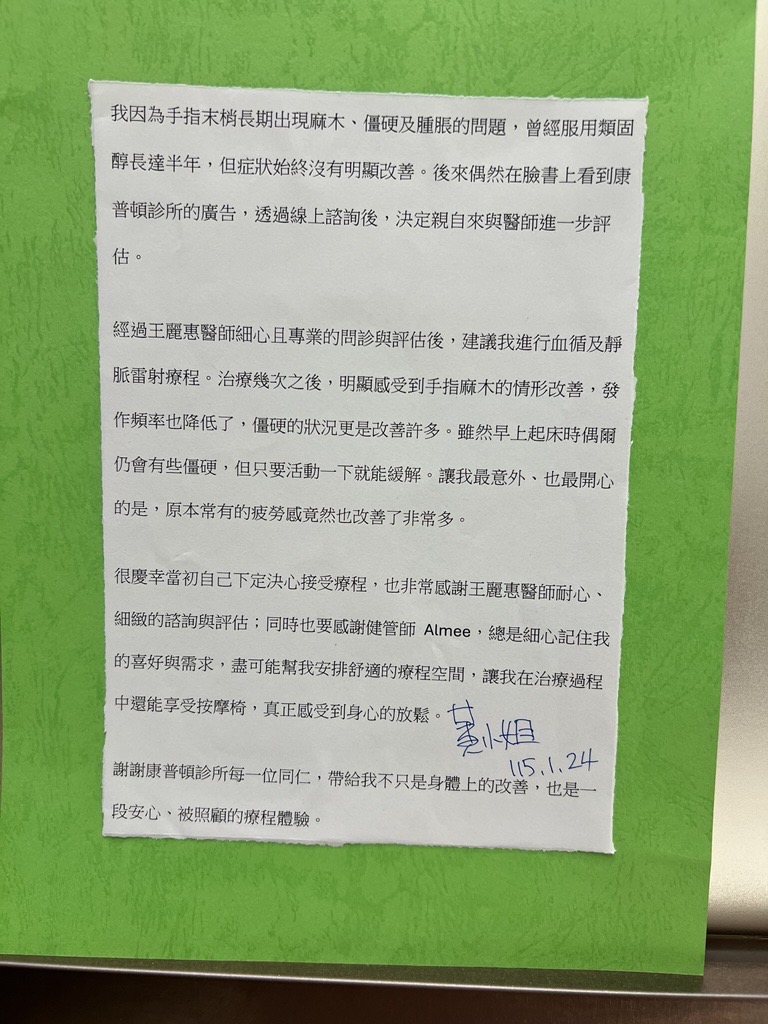 我因為手指末梢長期出現麻木、僵硬及腫脹的問題，曾經服用類固
醇長達半年，但症狀始終沒有明顯改善。後來偶然在臉書上看到康
普頓診所的廣告，透過線上諮詢後，決定親自來與醫師進一步評
估。
經過王麗惠醫師細心且專業的問診與評估後，建議我進行血循及靜
脈雷射療程。治療幾次之後，明顯感受到手指麻木的情形改善，發
作頻率也降低了，僵硬的狀況更是改善許多。雖然早上起床時偶爾
仍會有些僵硬，但只要活動一下就能緩解。讓我最意外、也最開心
的是，原本常有的疲勞感竟然也改善了非常多。
很慶幸當初自己下定決心接受療程，也非常感謝王麗惠醫師耐心、
細緻的諮詢與評估；同時也要感謝健管師 Almee，總是細心記住我
的喜好與需求，盡可能幫我安排舒適的療程空間，讓我在治療過程
中還能享受按摩椅，真正感受到身心的放鬆。
黃小姐
115.1.24
謝謝康普頓診所每一位同仁，帶給我不只是身體上的改善，也是一
段安心、被照顧的療程體驗。